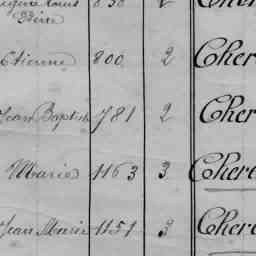 Pierre
Etienne 800 2 Cher
Jean Baptiste 781 2 Cher
Marie 1163 3 Cher
Jean Marie 1151 3 Cher